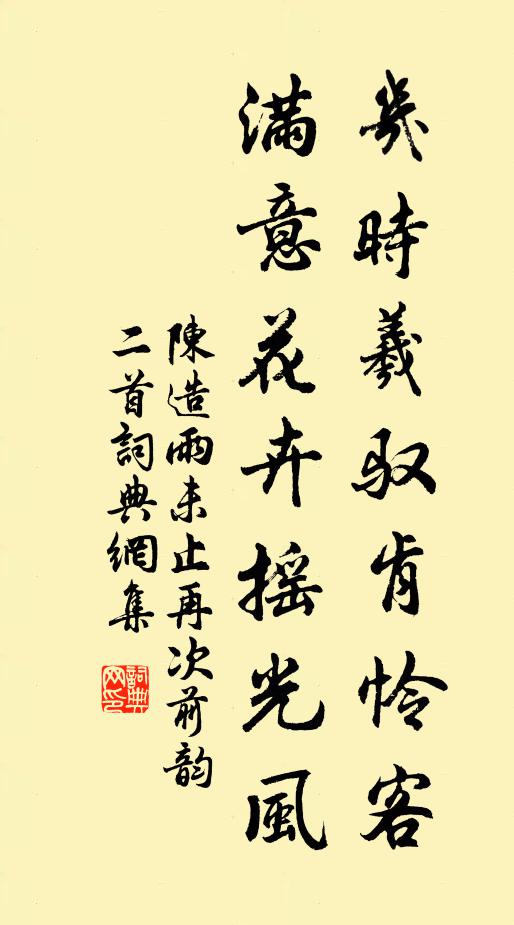 幾時羲馭肯怜客
滿意花卉摇光風
陳造雨未止再次前韵
二首詞典網集
詞典網印